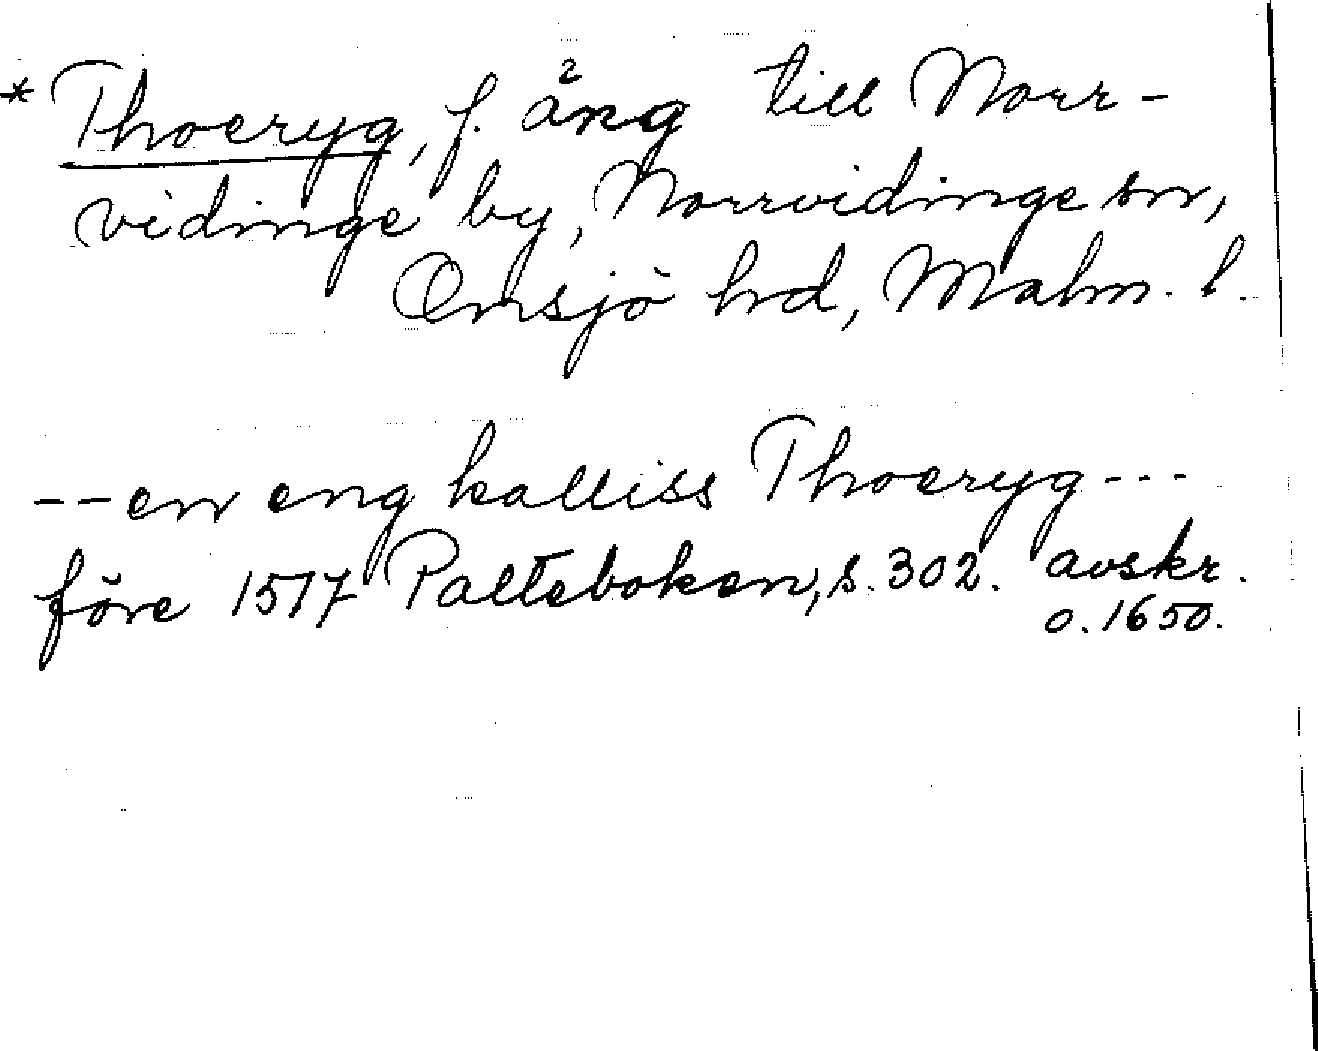 * Thoeryg, f. äng till Norr-
vidinge by, Norrvidinge sn,
Onsjö hd, Malm. l.
-- en eng kalliss Thoeryg ---
före 1517 Palteboken, s. 302. avskr.
o. 1650.